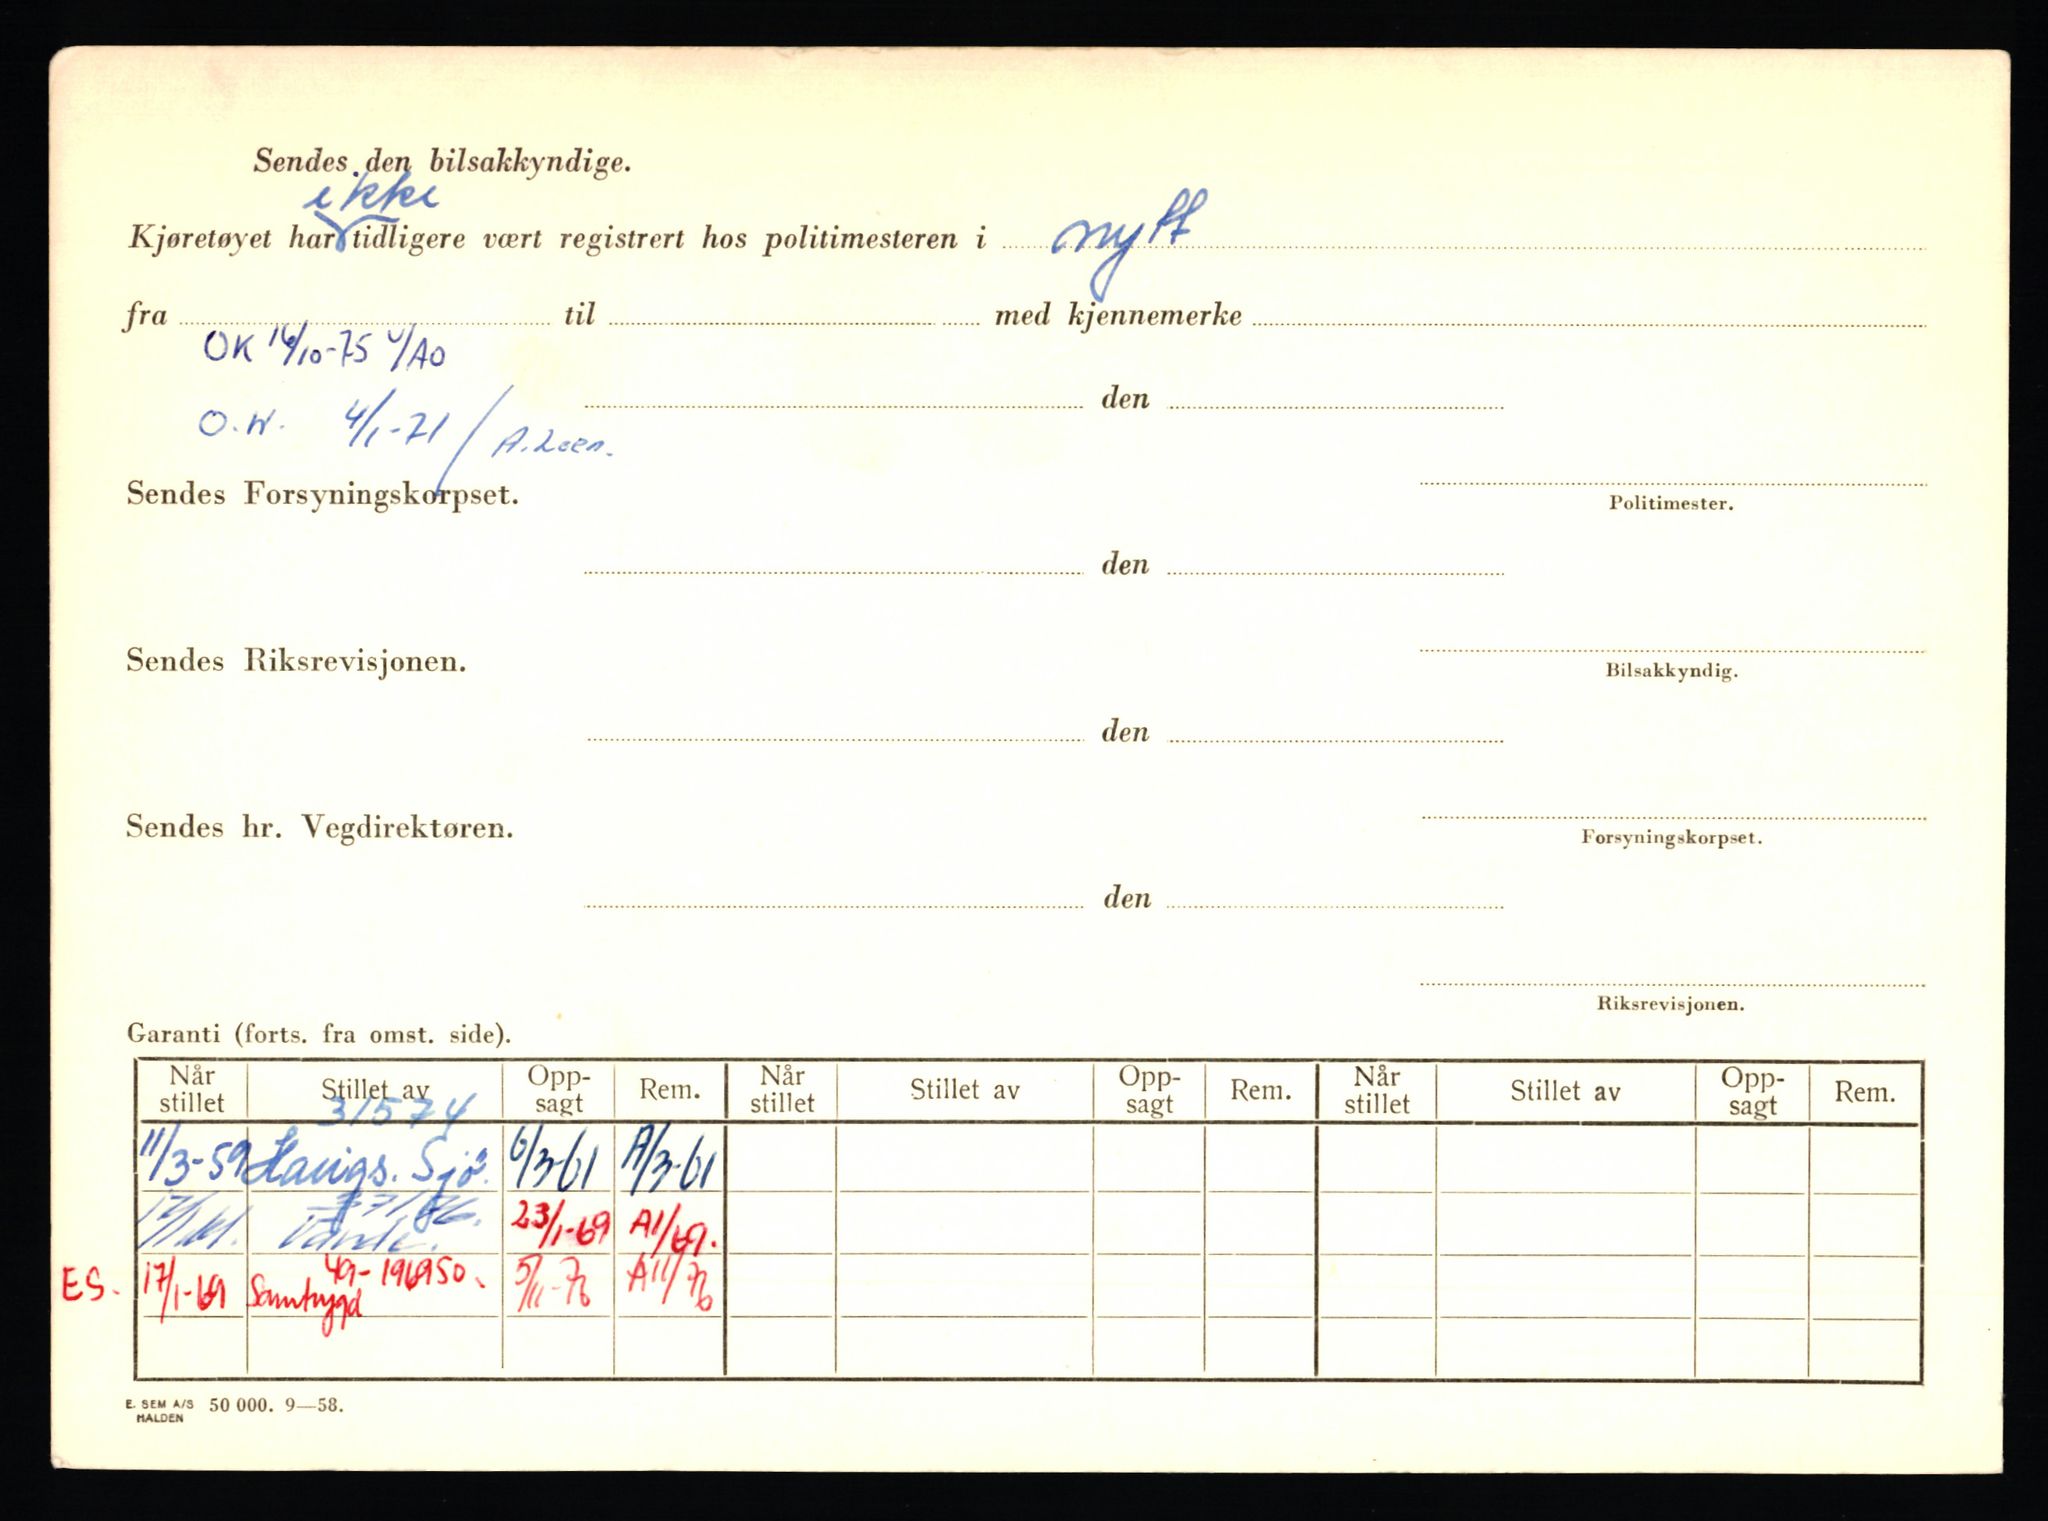 Sendes den bilsakkyndige.
ikke
Kjøretøyet har tidligere vært registrert hos politimesteren i nytt
fra til med kjennemerke
OK 16/10-75 /AO
den
O.W. 4/1-71 /
Sendes Forsyningskorpset.
Politimester.
den
Sendes Riksrevisjonen.
Bilsakkyndig.
den
Sendes hr. Vegdirektøren.
Forsyningskorpset.
den
Riksrevisjonen.
Garanti (forts. fra omst. side).
Når stillet Stillet av Opp-sagt Rem. Når stillet Stillet av Opp-sagt Rem. Når stillet Stillet av Opp-sagt Rem.
31574
11/3-59 Haugs. Sjø. 6/3-61 A/3-61
23/1-69 A1/69.
ES. 17/1-69 Samtrygd 49-196950. 5/11-76 A11/76
E. SEM A/S HALDEN 50 000. 9—58.